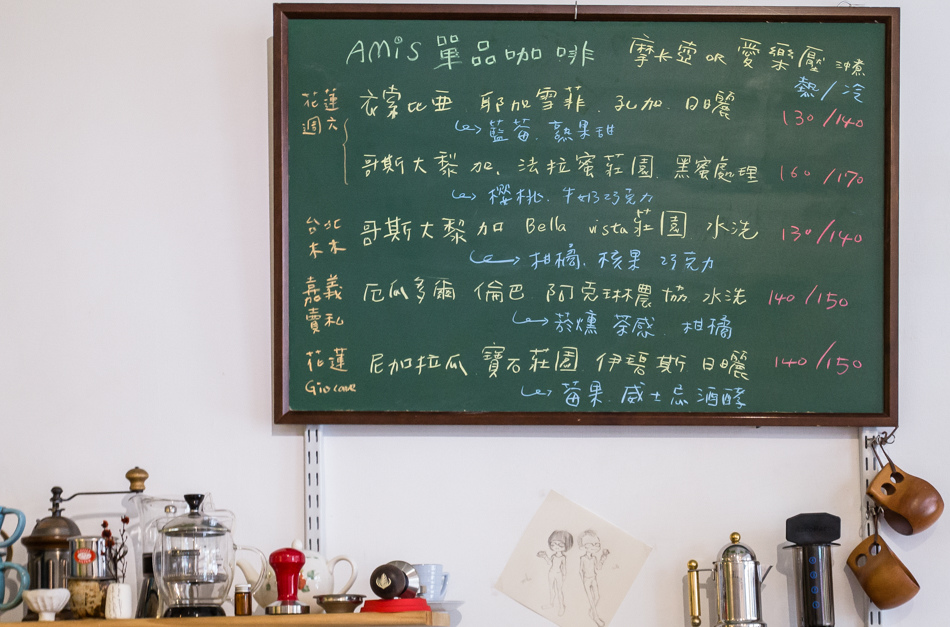 AMiS 單品咖啡 摩卡壺 or 愛樂壓 沖煮
熱/冷
花蓮 衣索比亞 耶加雪菲 孔加 日曬 130/140
週六 藍莓、熟果甜
哥斯大黎加、法拉蜜莊園 黑蜜處理 160/170
櫻桃、牛奶巧克力
台北 哥斯大黎加 Bella vista莊園 水洗 130/140
木木 柑橘、核果 巧克力
嘉義 厄瓜多爾 倫巴 阿克琳農協 水洗 140/150
賣私 菸燻 茶感 柑橘
花蓮 尼加拉瓜 寶石莊園 伊碧斯 日曬 140/150
Giocare 莓果、威士忌酒酵